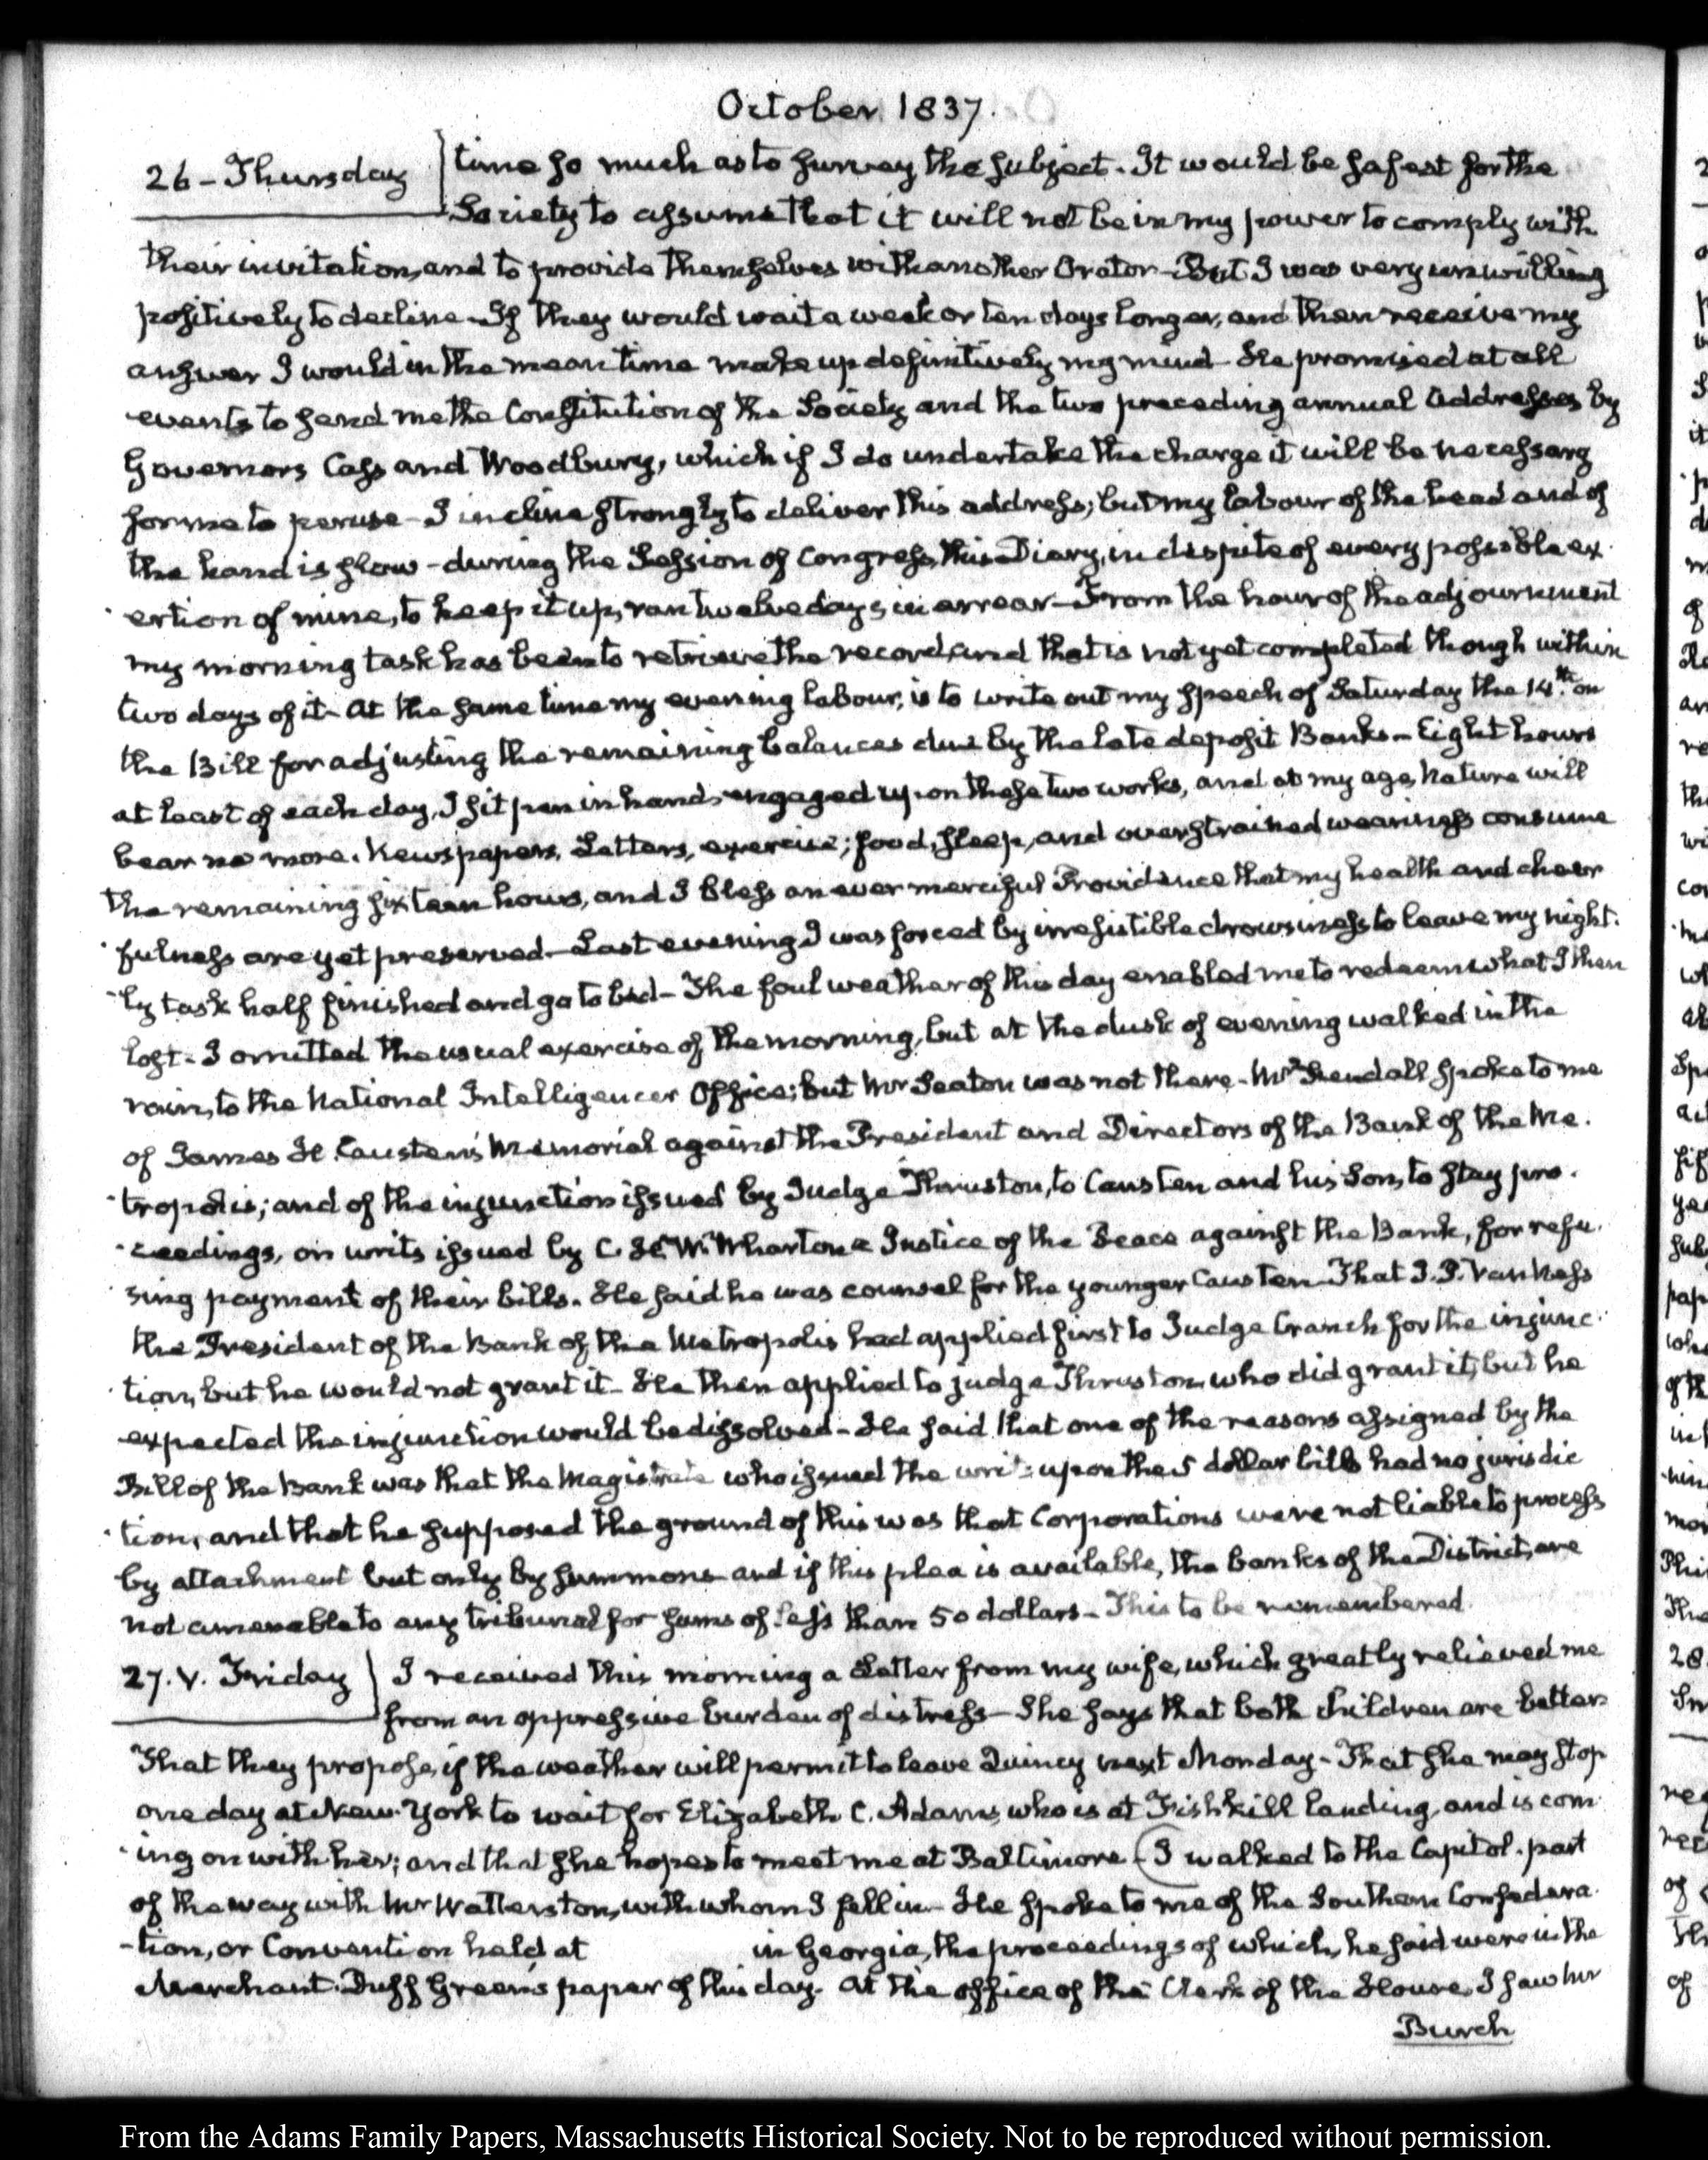 October 1837.
26 - Thursday
time so much as to survey the subject. It would be safest for the
Society to assume that it will not be in my power to comply with
their invitation, and to provide themselves with another Orator - But I was very unwilling
positively to decline - If they would wait a week or ten days longer, and then receive my
answer I would in the mean time make up definitively my mind - He promised at all
events to send me the Constitution of the Society and the two preceding annual addresses by
Governors Cass and Woodbury, which if I do undertake the charge it will be necessary
for me to peruse - I incline strongly to deliver this address; but my labour of the head and of
the hand is slow - during the Session of Congress, this Diary, in despite of every possible ex-
-ertion of mine, to keep it up, ran twelve days in arrear - From the hour of the adjournment
my morning task has been to retrieve the record, and that is not yet completed though within
two days of it - At the same time my evening labour, is to write out my speech of Saturday the 14th. on
the Bill for adjusting the remaining balances due by the late deposit Banks - Eight hours
at least of each day, I sit pen in hand engaged upon these two works, and at my age, Nature will
bear no more. Newspapers, Letters, exercise; food, sleep, and overstrained weariness consume
the remaining sixteen hours, and I bless an ever merciful Providence that my health and cheer
-fulness are yet preserved - Last evening I was forced by irresistible drowsiness to leave my night-
-ly task half finished and go to bed - The foul weather of this day enabled me to redeem what I then
lost - I omitted the usual exercise of the morning, but at the dusk of evening walked in the
rain, to the National Intelligencer Office; but Mr Seaton was not there - Mr Kendall spoke to me
of James H. Causten's Memorial against the President and Directors of the Bank of the Me-
-tropolis; and of the injunction issued by Judge Thruston, to Causten and his Son, to stay pro-
-ceedings, on writs issued by C. H. W. Wharton a Justice of the Peace against the Bank, for refu-
-sing payment of their bills. He said he was counsel for the younger Causten - That J. P. Van Ness
the President of the Bank of the Metropolis had applied first to Judge Cranch for the injunc-
-tion, but he would not grant it - He then applied to judge Thruston who did grant it, but he
expected the injunction would be dissolved - He said that one of the reasons assigned by the
Bill of the Bank was that the Magistrate who issued the writs upon the 5 dollar bills had no jurisdic
-tion, and that he supposed the ground of this was that Corporations were not liable to process
by attachment but only by summons and if this plea is available, the banks of the District, are
not amenable to any tribunal for sums of less than 50 dollars - This to be remembered.
27. V. Friday
I received this morning a Letter from my wife, which greatly relieved me
from an oppressive burden of distress - She says that both children are better
That they propose, if the weather will permit to leave Quincy next Monday - That she may stop
one day at New-York to wait for Elizabeth C. Adams, who is at Fishkill landing, and is com-
-ing on with her; and that she hopes to meet me at Baltimore - (I walked to the Capitol - part
of the way with Mr Watterston, with whom I fell in - He spoke to me of the Southern Confedera-
-tion, or Convention held at in Georgia, the proceedings of which, he said were in the
Merchant. Duff Green's paper of this day. At the office of the Clerk of the House, I saw Mr
Burch
From the Adams Family Papers, Massachusetts Historical Society. Not to be reproduced without permission.